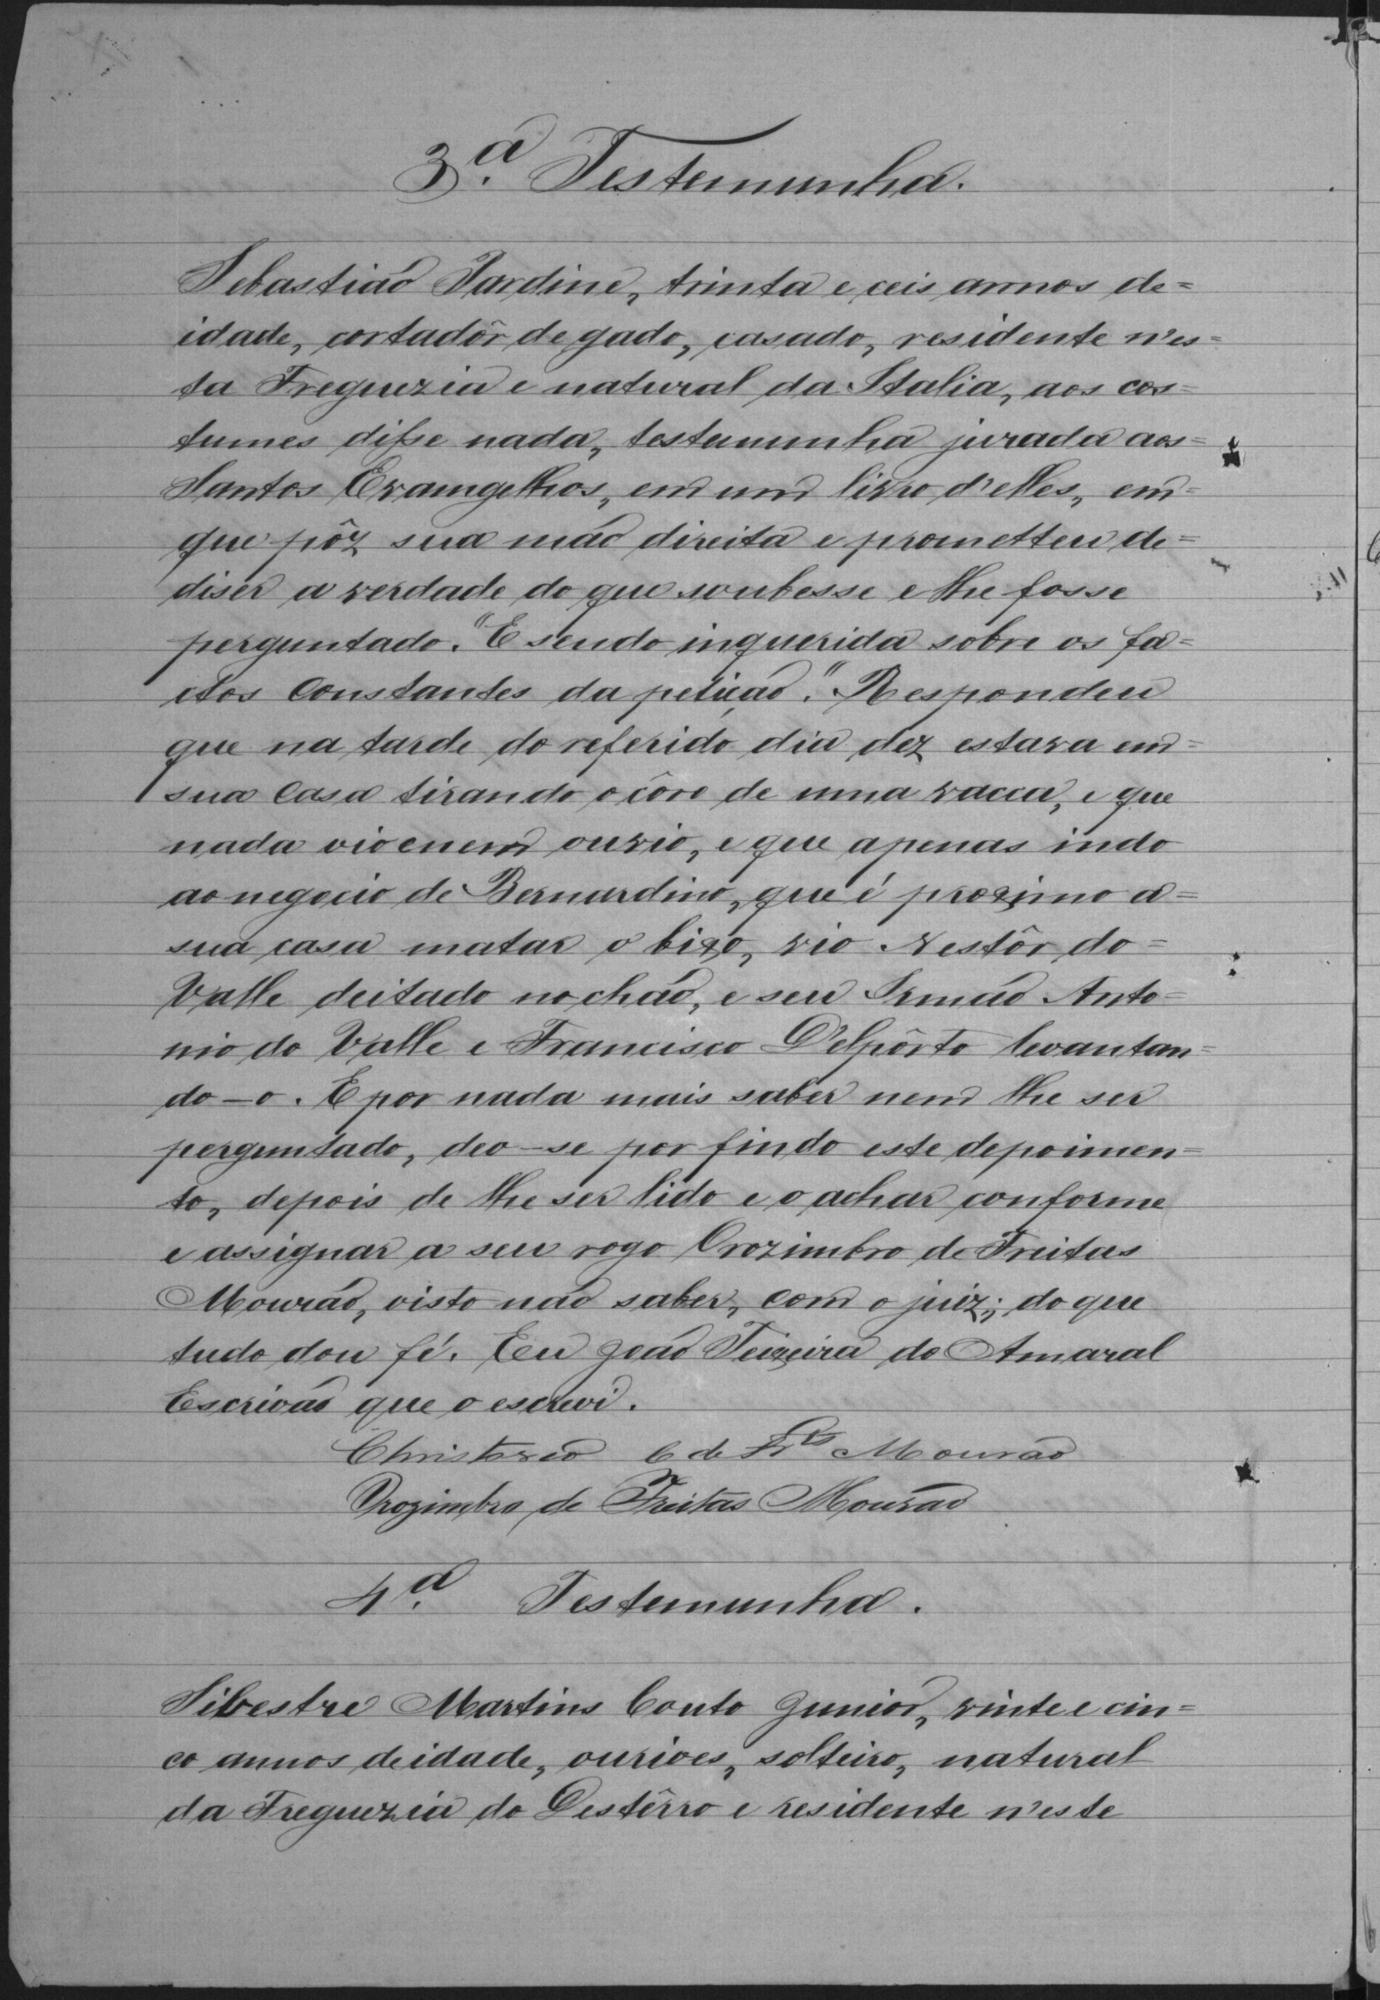 3.ª Testemunha.
Sebastião Jardine, trinta e ceis annos de=
idade, cortadôr de gado, casado, residente n'es=
ta Freguezia e natural da Italia, aos cos=
tumes disse nada, testemunha jurada aos=
Santos Evamgelhos, em um livro d'elles, em=
que pôz sua mão direita e prometteu de=
diser a verdade do que soubesse e lhe fosse
perguntado. "E sendo inquerida sobre os fa=
ctos constantes da petição." Respondeu
que na tarde do referido dia dez estava em=
sua casa tirando o côro de uma vacca, e que
nada vio e nem ouvio, e que apenas indo
ao negocio de Bernardino, que é proximo a=
sua casa matar o bixo, vio Nestôr do=
Valle deitado no chão, e seu Irmão Anto=
nio do Valle e Francisco Delpôrto levantan=
do-o. E por nada mais saber nem lhe ser
perguntado, deo-se por findo este depoimen=
to, depois de lhe ser lido e o achar conforme
e assignar a seu rogo Orozimbro de Freitas
Mourão, visto não saber, com o juiz; do que
tudo dou fé. Eu João Teixeira do Amaral
Escrivão que o escrevi.
C de Frtas Mourão
Orozimbro de Freitas Mourão
4.ª Testemunha.
Silvestre Martins Couto Junior, vinte e cin=
co annos de idade, ourives, solteiro, natural
da Freguezia do Destêrro e residente n'este